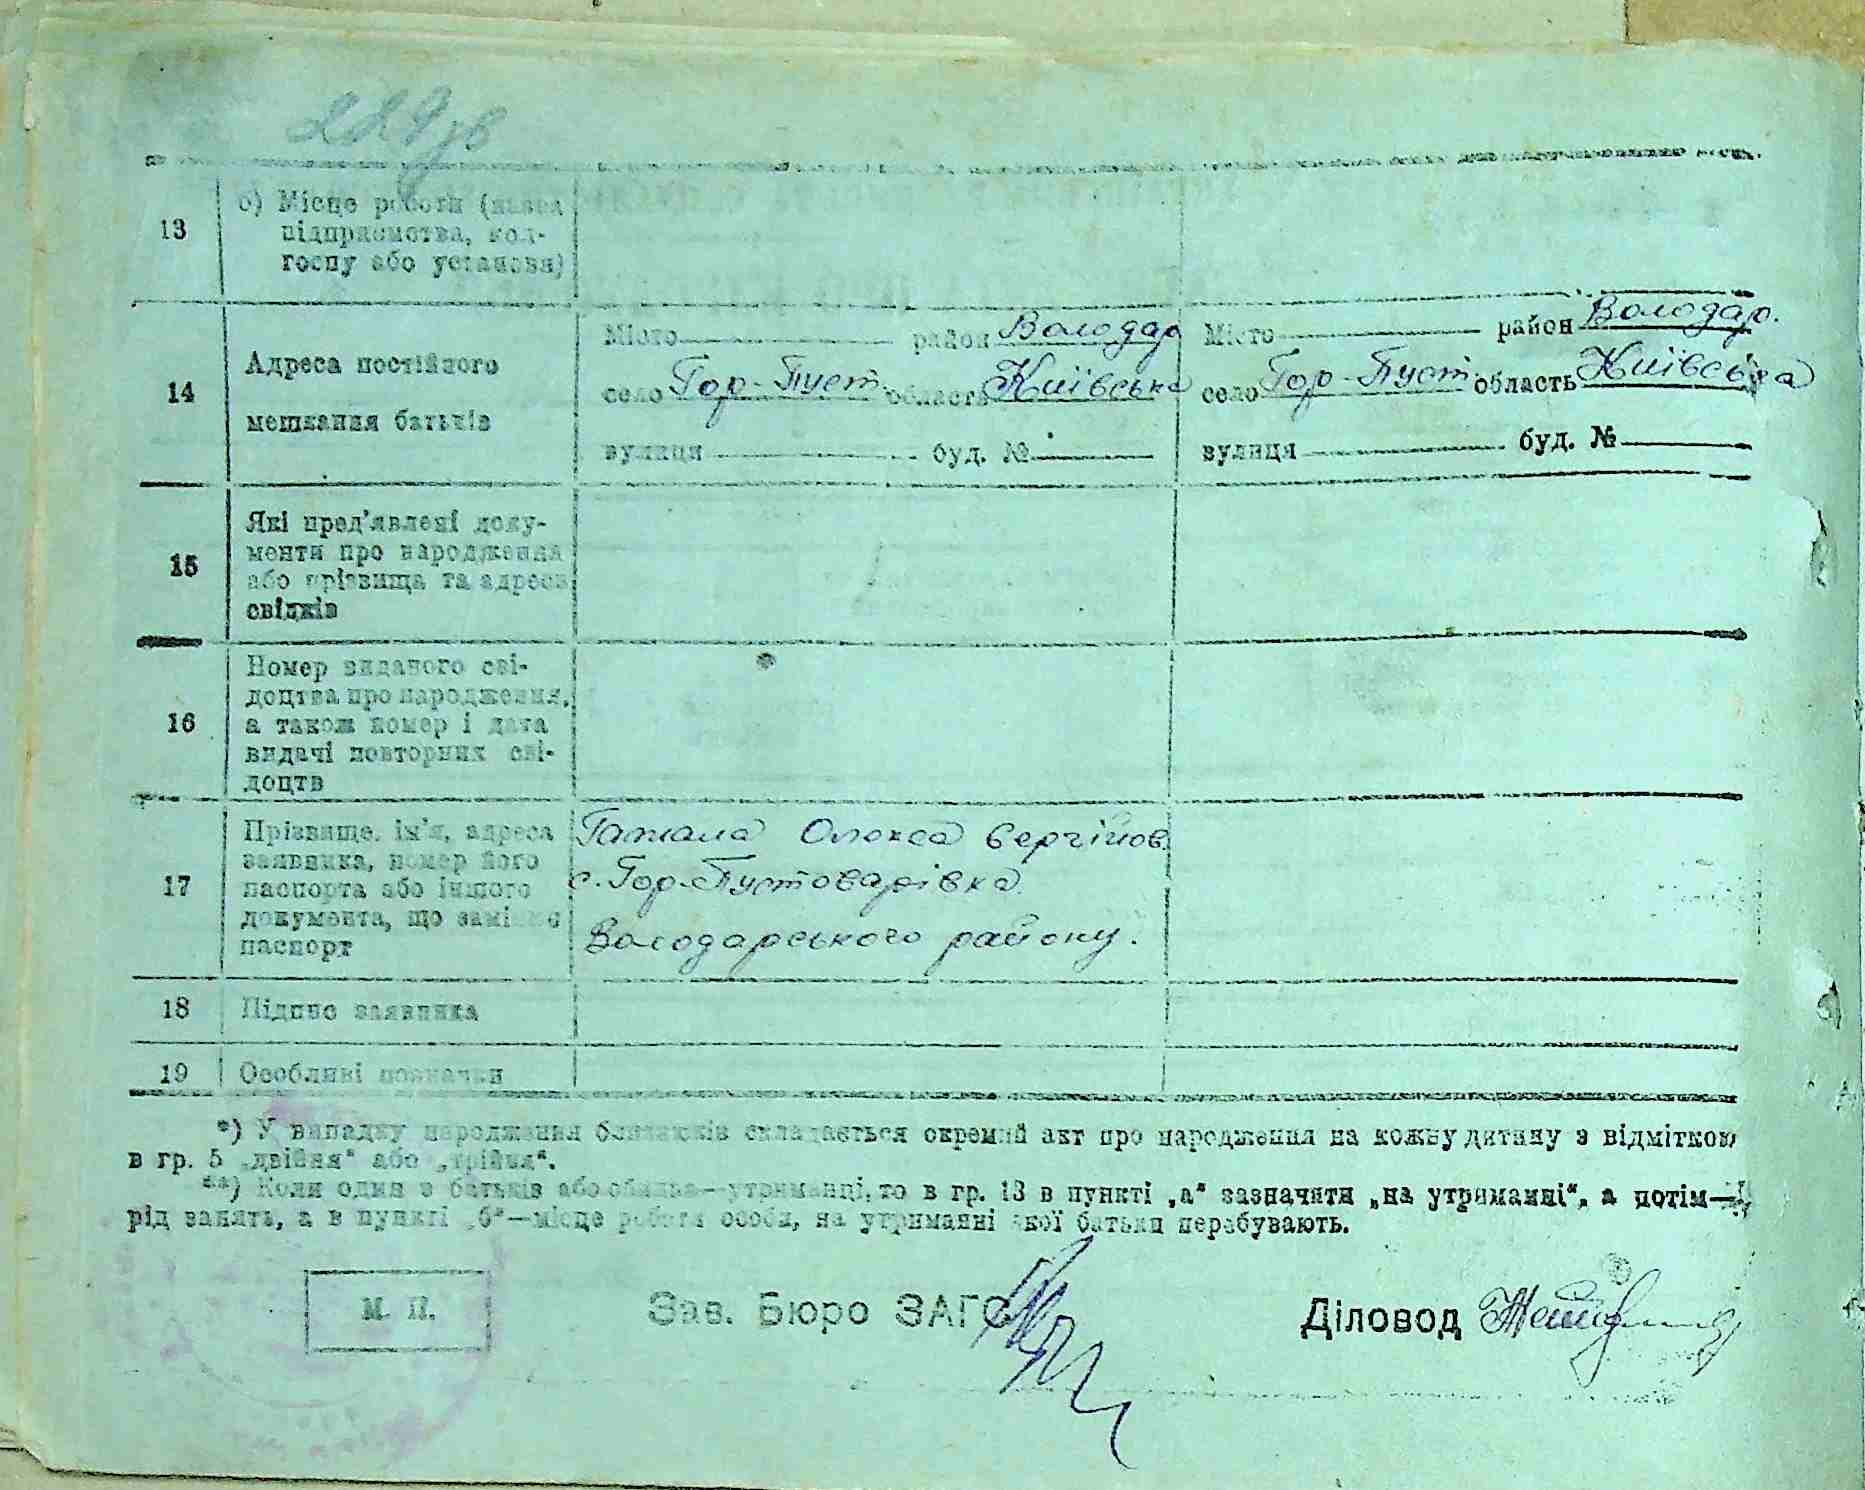 229 зв
13
б) Місце роботи (назва
підприємства, кол-
госпу або установи)
14
Адреса постійного
мешкання батьків
Місто район Володар
село Гор-Пуст. область Київська
вулиця буд. №
Місто район Володар.
село Гор-Пуст область Київська
вулиця буд. №
15
Які пред'явлені доку-
менти про народження
або прізвища та адреса
свідків
16
Номер виданого сві-
доцтва про народження,
а також номер і дата
видачі повторних сві-
доцтв
17
Прізвище, ім'я, адреса
заявника, номер його
паспорта або іншого
документа, що заміняє
паспорт
Олекса Сергійов.
с. Гор-Пустоварівка
Володарського району.
18
Підпис заявника
19
Особливі позначки
*) У випадку народження близнюків складається окремий акт про народження на кожну дитину з відміткою
в гр. 5 „двійня“ або „трійня“.
**) Коли один з батьків або обидва—утриманці, то в гр. 13 в пункті „а“ зазначати „на утриманні“, а потім—
рід занять, а в пункті „б“—місце роботи особи, на утриманні якої батьки перебувають.
М. П.
Зав. Бюро ЗАГС
Діловод